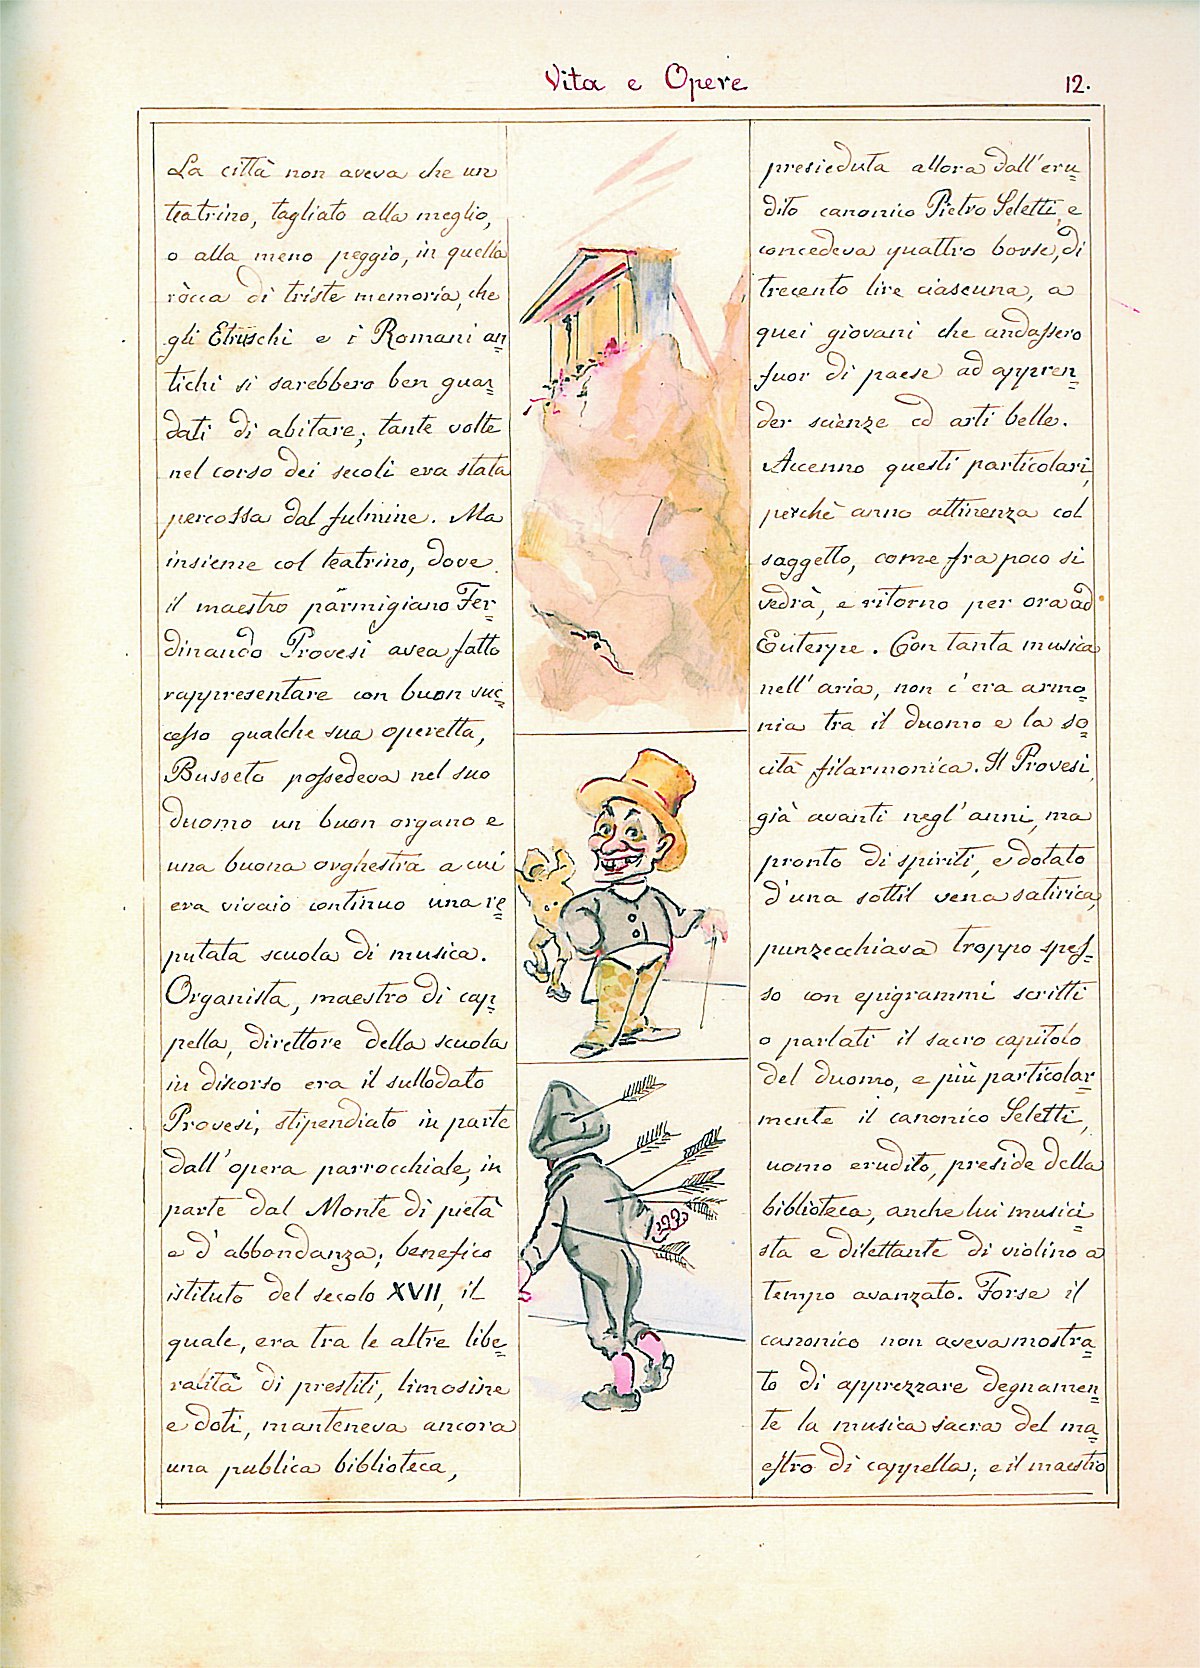 Vita e Opere
12.
La città non aveva che un
teatrino, tagliato alla meglio,
o alla meno peggio, in quella
ròcca di triste memoria, che
gli Etruschi e i Romani an=
tichi si sarebbero ben guar=
dati di abitare; tante volte
nel corso dei secoli era stata
percossa dal fulmine. Ma
insieme col teatrino, dove
il maestro parmigiano Fer=
dinando Provesi avea fatto
rappresentare con buon suc=
cesso qualche sua operetta,
Busseto possedeva nel suo
duomo un buon organo e
una buona orghestra a cui
era vivaio continuo una re=
putata scuola di musica.
Organista, maestro di cap=
pella, direttore della scuola
in discorso era il sullodato
Provesi, stipendiato in parte
dall'opera parrocchiale, in
parte dal Monte di pietà
e d'abbondanza; benefico
istituto del secolo XVII, il
quale, era tra le altre libe=
ralità di prestiti, limosine
e doti, manteneva ancora
una publica biblioteca,
presieduta allora dall'eru=
dito canonico Pietro Seletti, e
concedeva quattro borse, di
trecento lire ciascuna, a
quei giovani che andassero
fuor di paese ad appren=
der scienze ed arti belle.
Accenno questi particolari,
perchè anno attinenza col
soggetto, come fra poco si
vedrà, e ritorno per ora ad
Euterpe. Con tanta musica
nell'aria, non c'era armo=
nia tra il duomo e la so=
cità filarmonica. Il Provesi,
già avanti negl'anni, ma
pronto di spiriti, e dotato
d'una sottil vena satirica,
punzecchiava troppo spes=
so con epigrammi scritti
o parlati il sacro capitolo
del duomo, e più particolar=
mente il canonico Seletti,
uomo erudito, preside della
biblioteca, anche lui musici=
sta e dilettante di violino a
tempo avanzato. Forse il
canonico non aveva mostra=
to di apprezzare degnamen=
te la musica sacra del ma=
estro di cappella; e il maestro